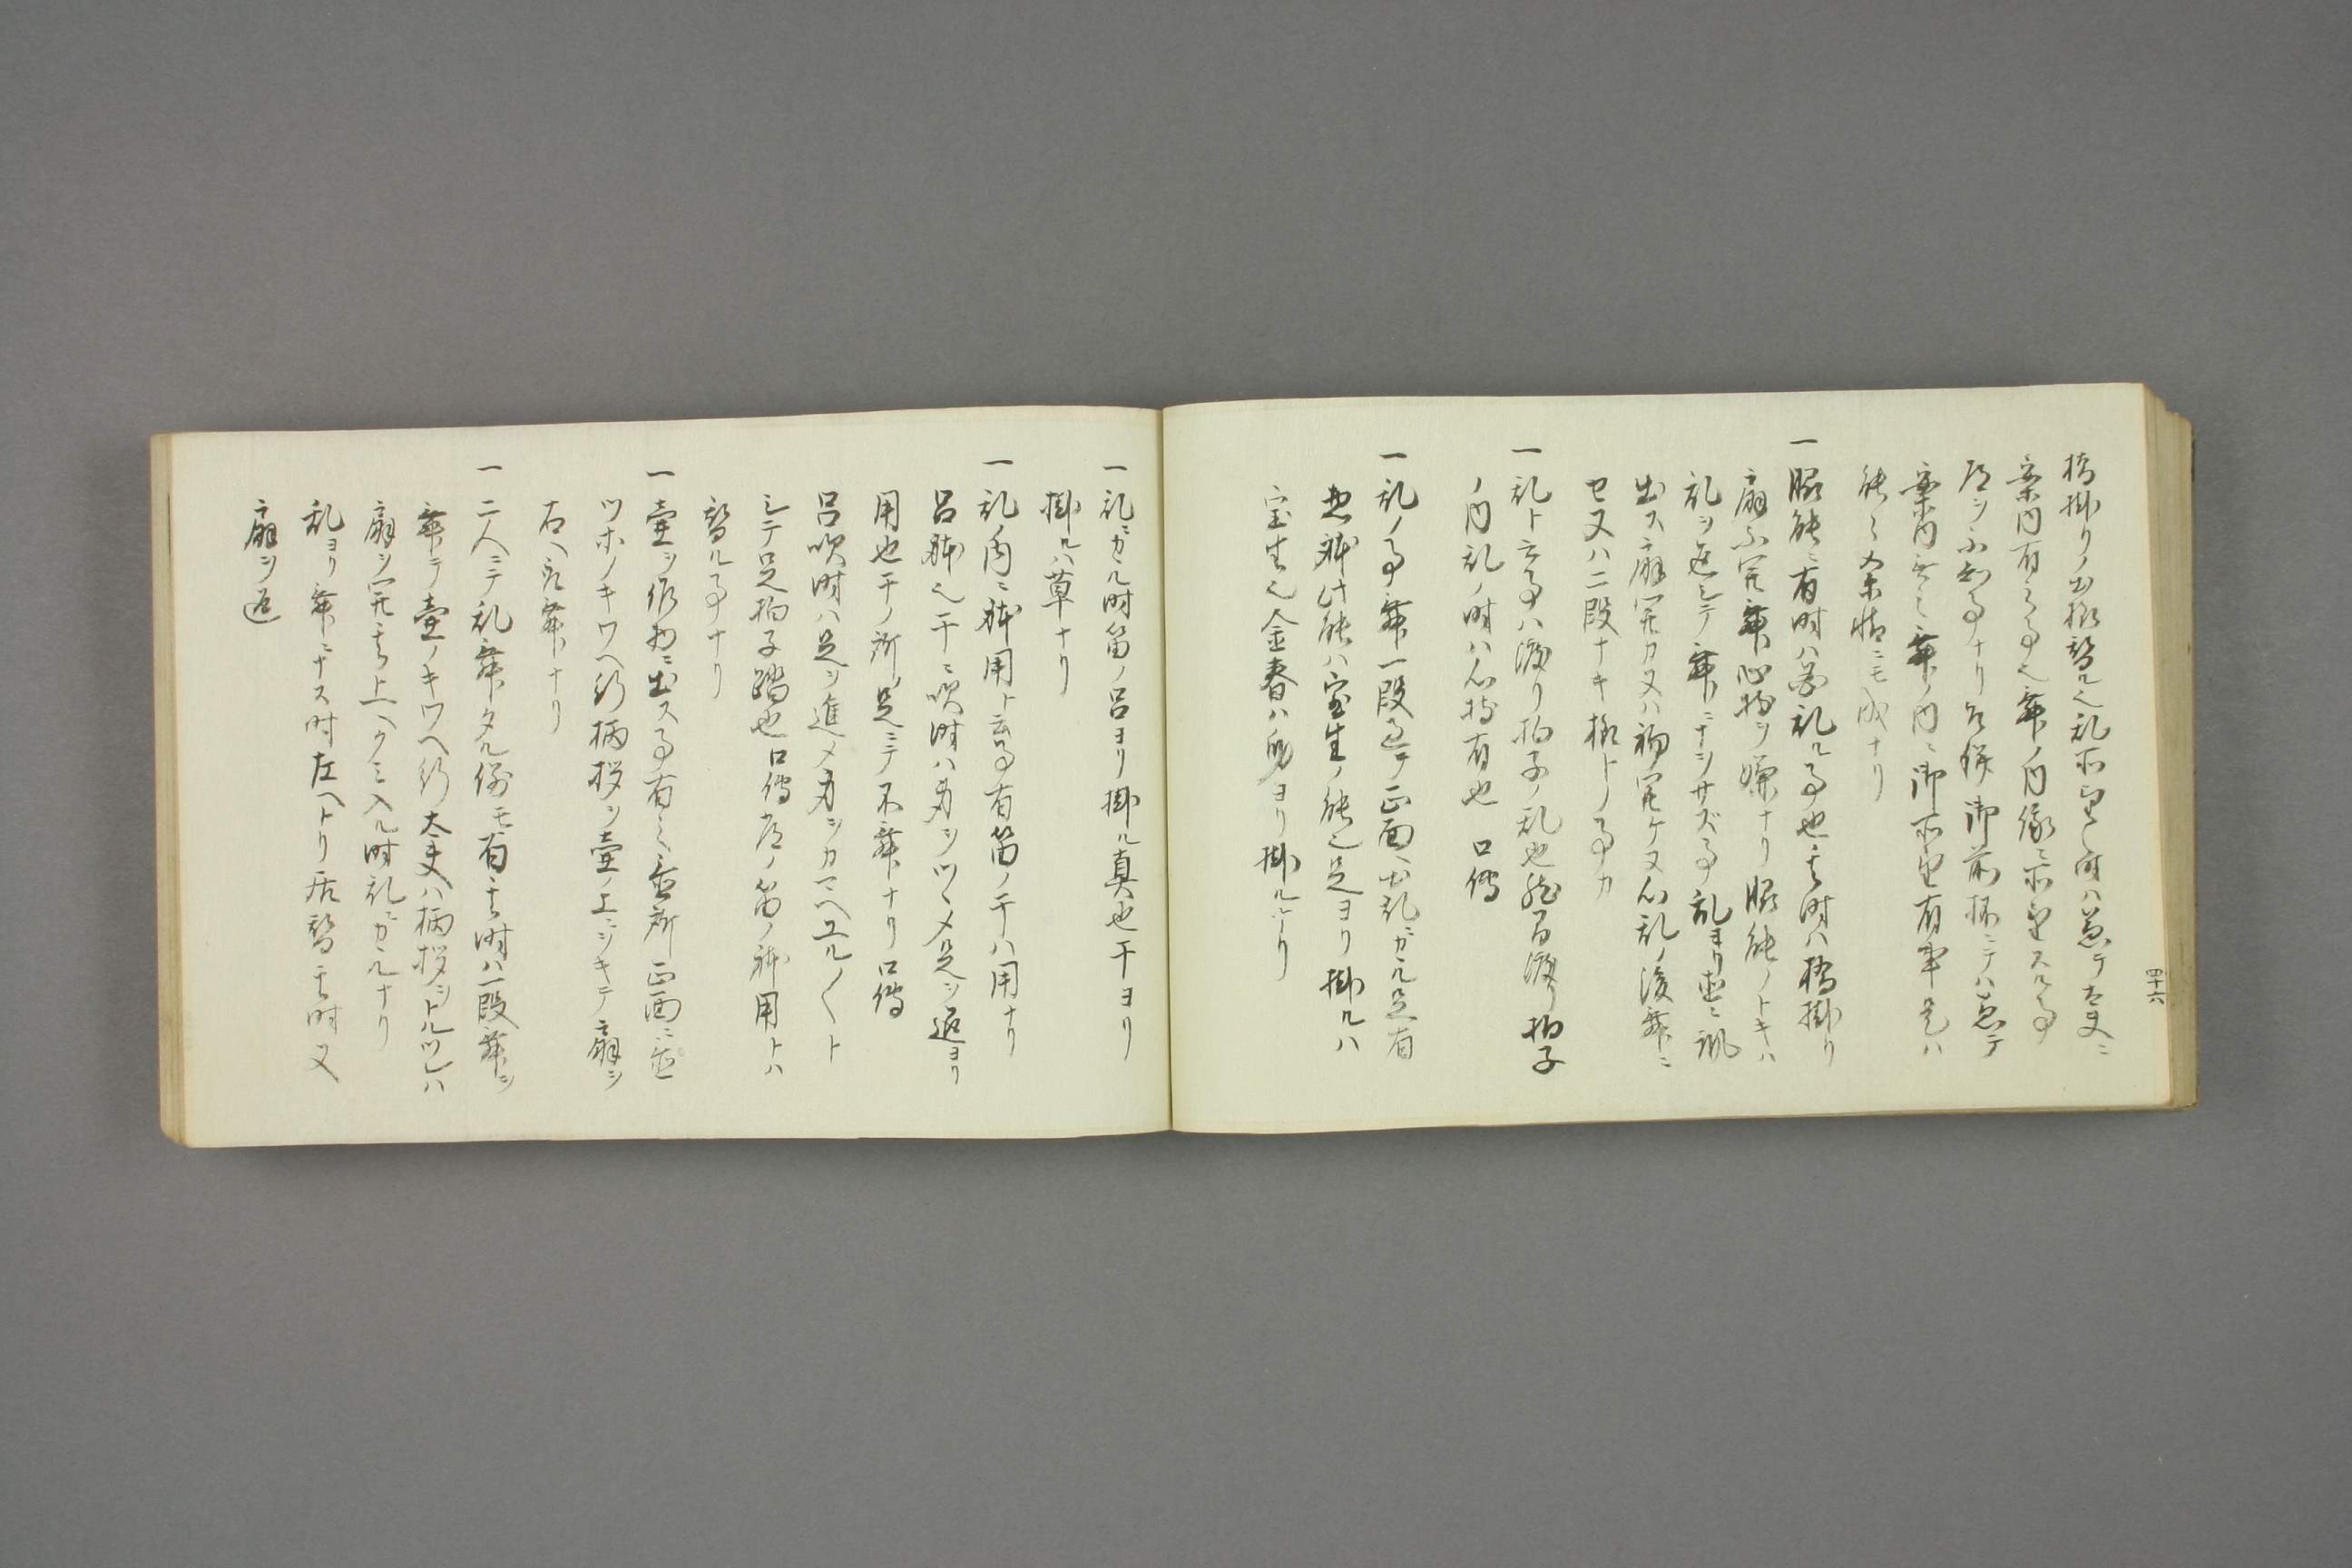 橋掛リノ出様替ル也乱所望ノ時ハ急テ太夫ニ
案内有之事也舞ノ内俄ニ所望スル事
ヲ不知事ナリ乍併御前抔ニテハ急テ
案内無之舞ノ内ニ御所望有事是ハ
能々
一脇能ニ有時ハ必乱ル事也其時ハ橋掛リ
扇不開舞心持ヲ嫌ナリ脇能ノトキハ
乱ヲ返シテ舞ニナヲサズ事乱ヨリ直ニ謡
出ス扇開カ又ハ初開ケ又乱ノ後舞ニ
セ又ハ二段ナキ様トノ事カ
一乱ト云事ハ渡リ拍子ノ乱也然間渡リ拍子
ノ内乱ノ時ハ心持有也 口傳
一乱ノ事舞一段過テ正面ニ而乱ニガヽル足有
惣躰此能ハ宝生ノ能也足ヨリ掛ルハ
宝生也金春ハ身ヨリ掛ルナリ
四十六
一乱ニガヽル時笛ノ呂ヨリ掛ル真也干ヨリ
掛ルハ草ナリ
一乱ノ内ニ躰用ト云事有笛ノ干ハ用ナリ
呂躰也干ニ吹時ハ身ヲツヽメ足ヲ返ヨリ
用也干ノ所足ニテ不舞ナリ口傳
呂吹時ハ足ヲ進メ身ヲカマヘユル〱ト
シテ足拍子踏也口傳彦ノ笛ノ躰用トハ
替ル事ナリ
一壷ヲ作物ニ出ス事有之壷所正面ニ壷
ツホノキワヘ行柄抄ヲ壷ノ上ニヲキテ扇ヲ
右ヘ取舞ナリ
一二人ニテ乱舞タル例モ有其時ハ一段舞ヲ
舞テ壷ノキワヘ行太夫ハ柄抄ヲトルツレハ
扇ヲ開其上ヘクミ入ル時乱ニガヽルナリ
乱ヨリ舞ニナス時左ヘトリ居替其時又
扇ヲ返